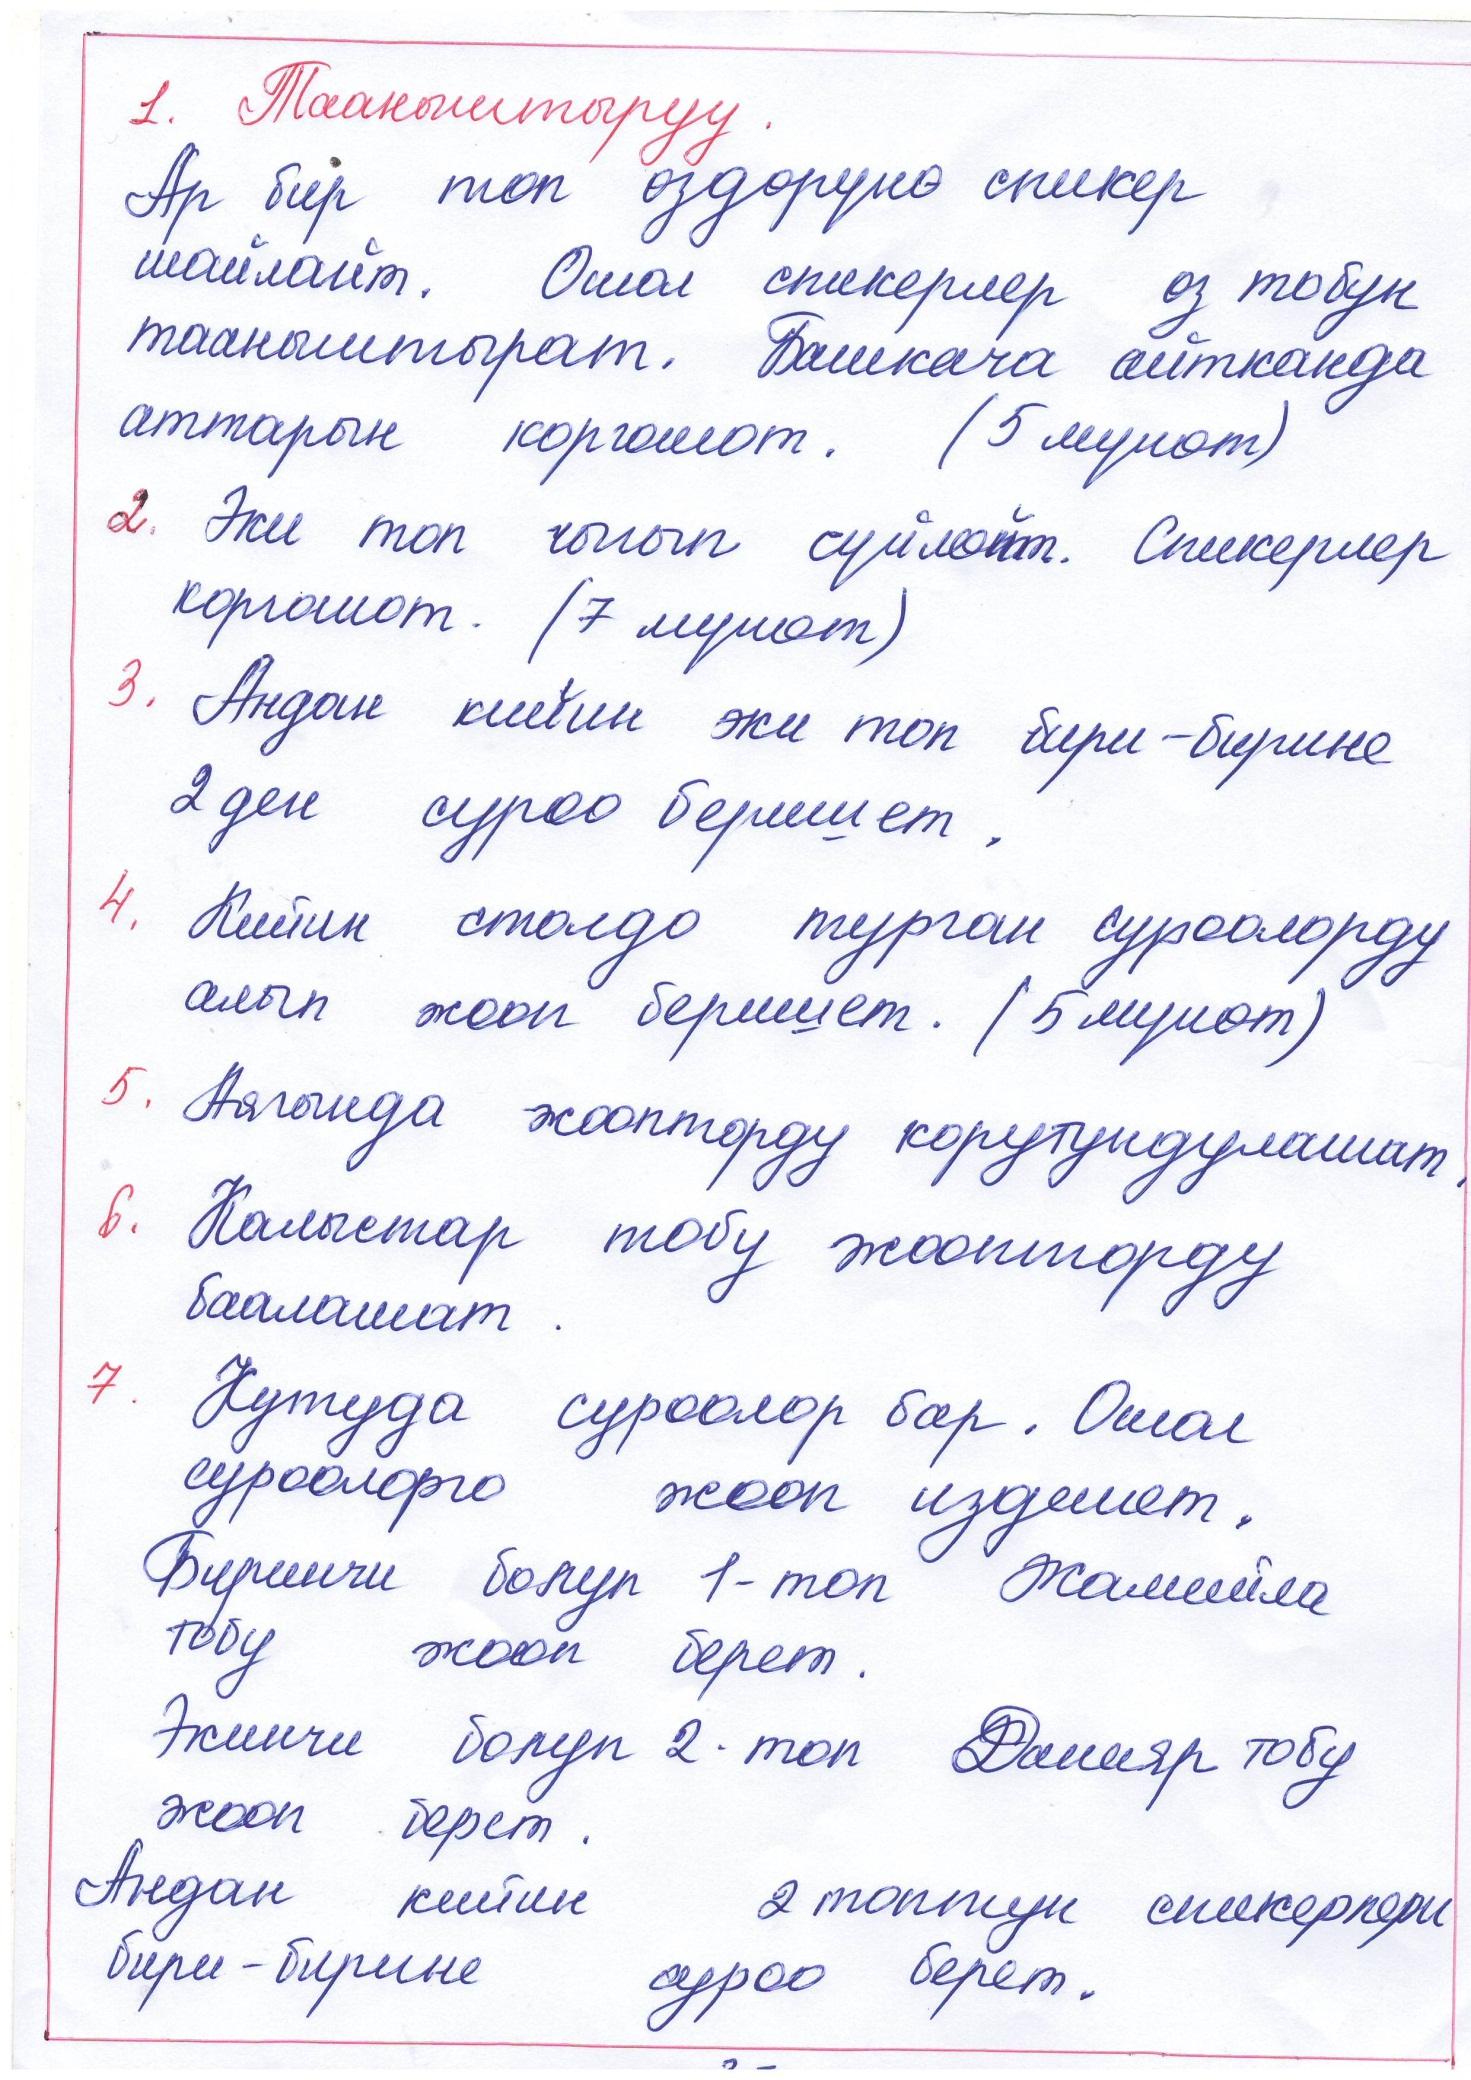 1. Тааныштыруу.
Ар бир топ өздөрүнө спикер
шайлайт. Ошол спикерлер өз тобун
тааныштырат. Башкача айтканда
аттарын коргошот. (5 мүнөт)
2. Эки топ чыгып сүйлөйт. Спикерлер
коргошот. (7 мүнөт)
3. Андан кийин эки топ бири-бирине
2 ден суроо беришет.
4. Кийин столдо турган суроолорду
алып жооп беришет. (5 мүнөт)
5. Аягында жоопторду корутундулашат.
6. Калыстар тобу жоопторду
баалашат.
7. Кутуда суроолор бар. Ошол
суроолорго жооп издешет.
Биринчи болуп 1-топ Жамийла
тобу жооп берет.
Экинчи болуп 2-топ Данияр тобу
жооп берет.
Андан кийин 2 топтун спикерлери
бири-бирине суроо берет.